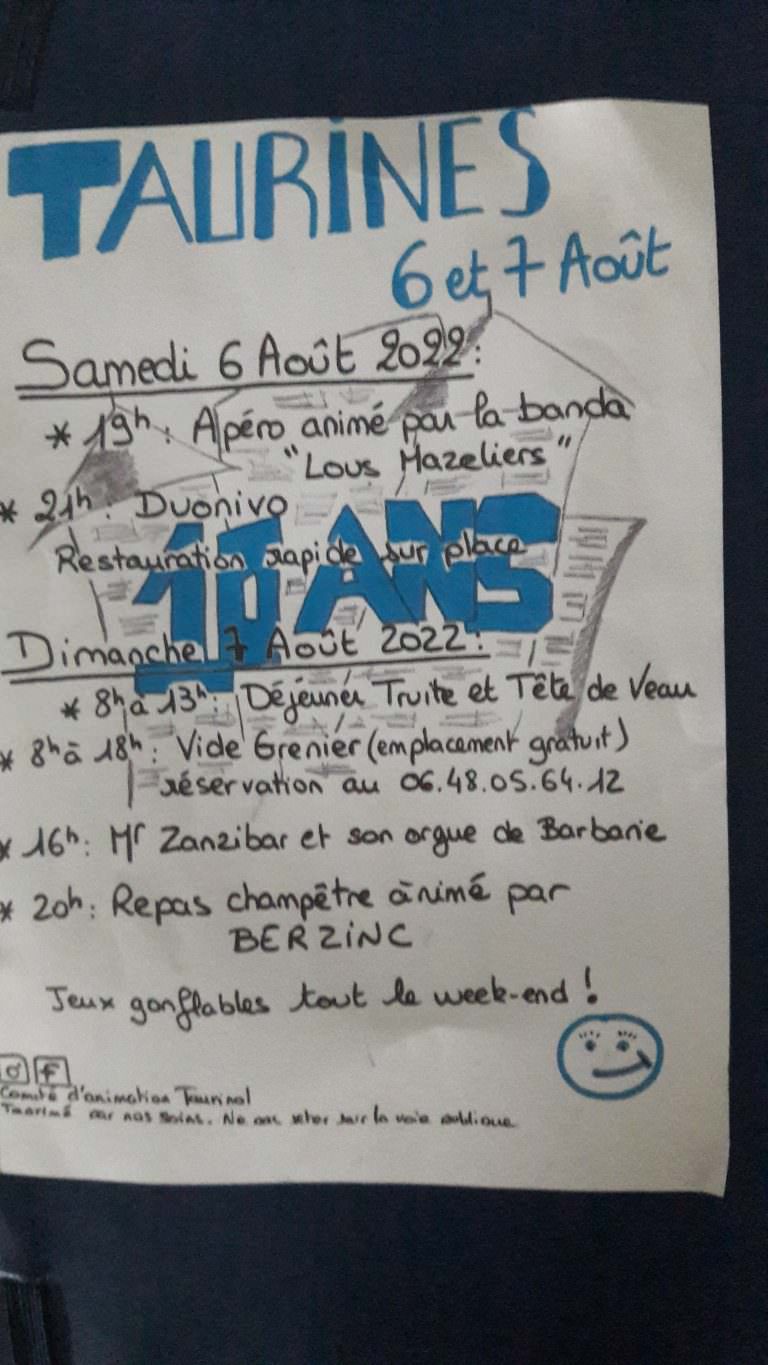 TAURINES
6 et 7 Août
Samedi 6 Août 2022:
* 19h: Apéro animé par la banda
"Lous Mazeliers"
* 21h: Duonivo
10 ANS
Restauration rapide sur place
Dimanche 7 Août 2022:
* 8h à 13h: Déjeuner Truite et Tête de Veau
* 8h à 18h: Vide Grenier (emplacement gratuit)
réservation au 06.48.05.64.12
* 16h: Mr Zanzibar et son orgue de Barbarie
* 20h: Repas champêtre animé par
BERZINC
Jeux gonflables tout le week-end!
f
Comité d'animation Taurinol
par nos soins. Ne pas jeter sur la voie publique